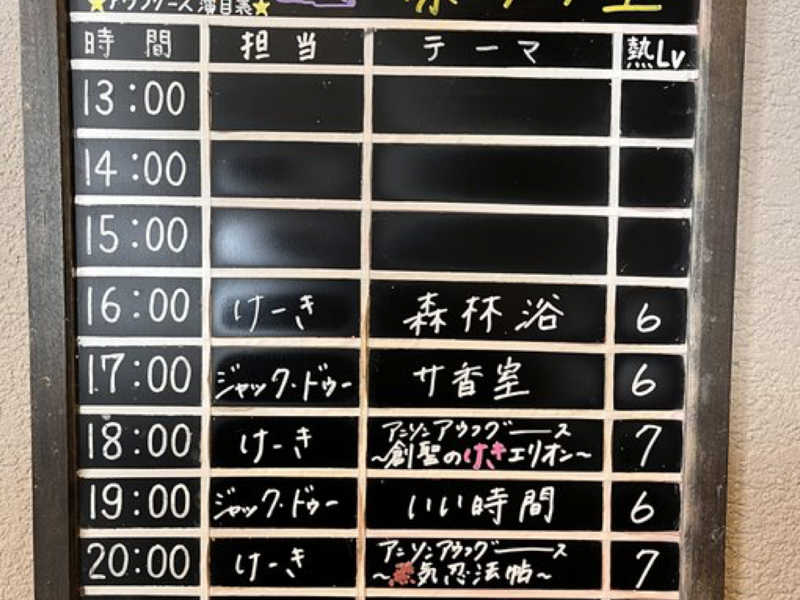 ★アウフグース演目表★
時間 担当 テーマ 熱Lv
13:00
14:00
15:00
16:00 けーき 森林浴 6
17:00 ジャック・ドゥー サ香室 6
18:00 けーき アニソンアウフグース 7
～創聖のけきエリオン～
19:00 ジャック・ドゥー いい時間 6
20:00 けーき アニソンアウフグース 7
～蒸気忍法帖～